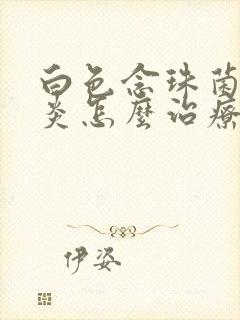 白色念珠菌
炎怎麼治療
伊姿